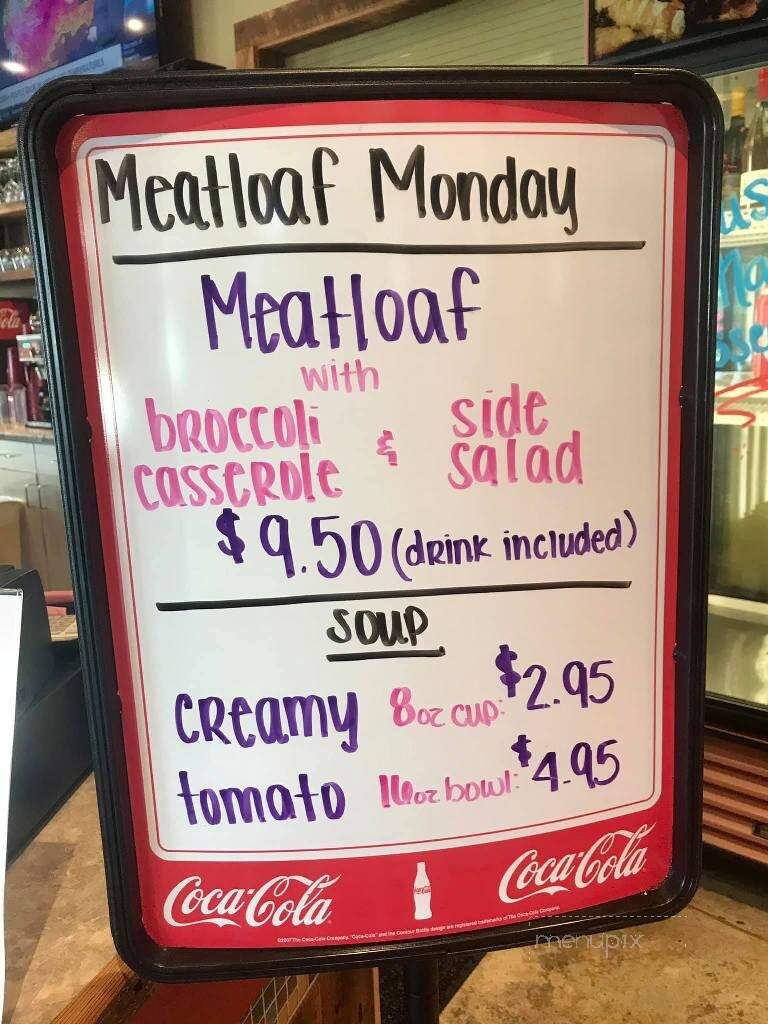 Meatloaf Monday
Meatloaf
with
broccoli casserole & side salad
$9.50 (drink included)
soup
creamy tomato
8oz cup: $2.95
16oz bowl: $4.95
Coca-Cola Coca-Cola
©2007 The Coca-Cola Company. "Coca-Cola" and the Contour Bottle design are registered trademarks of The Coca-Cola Company.
menupix